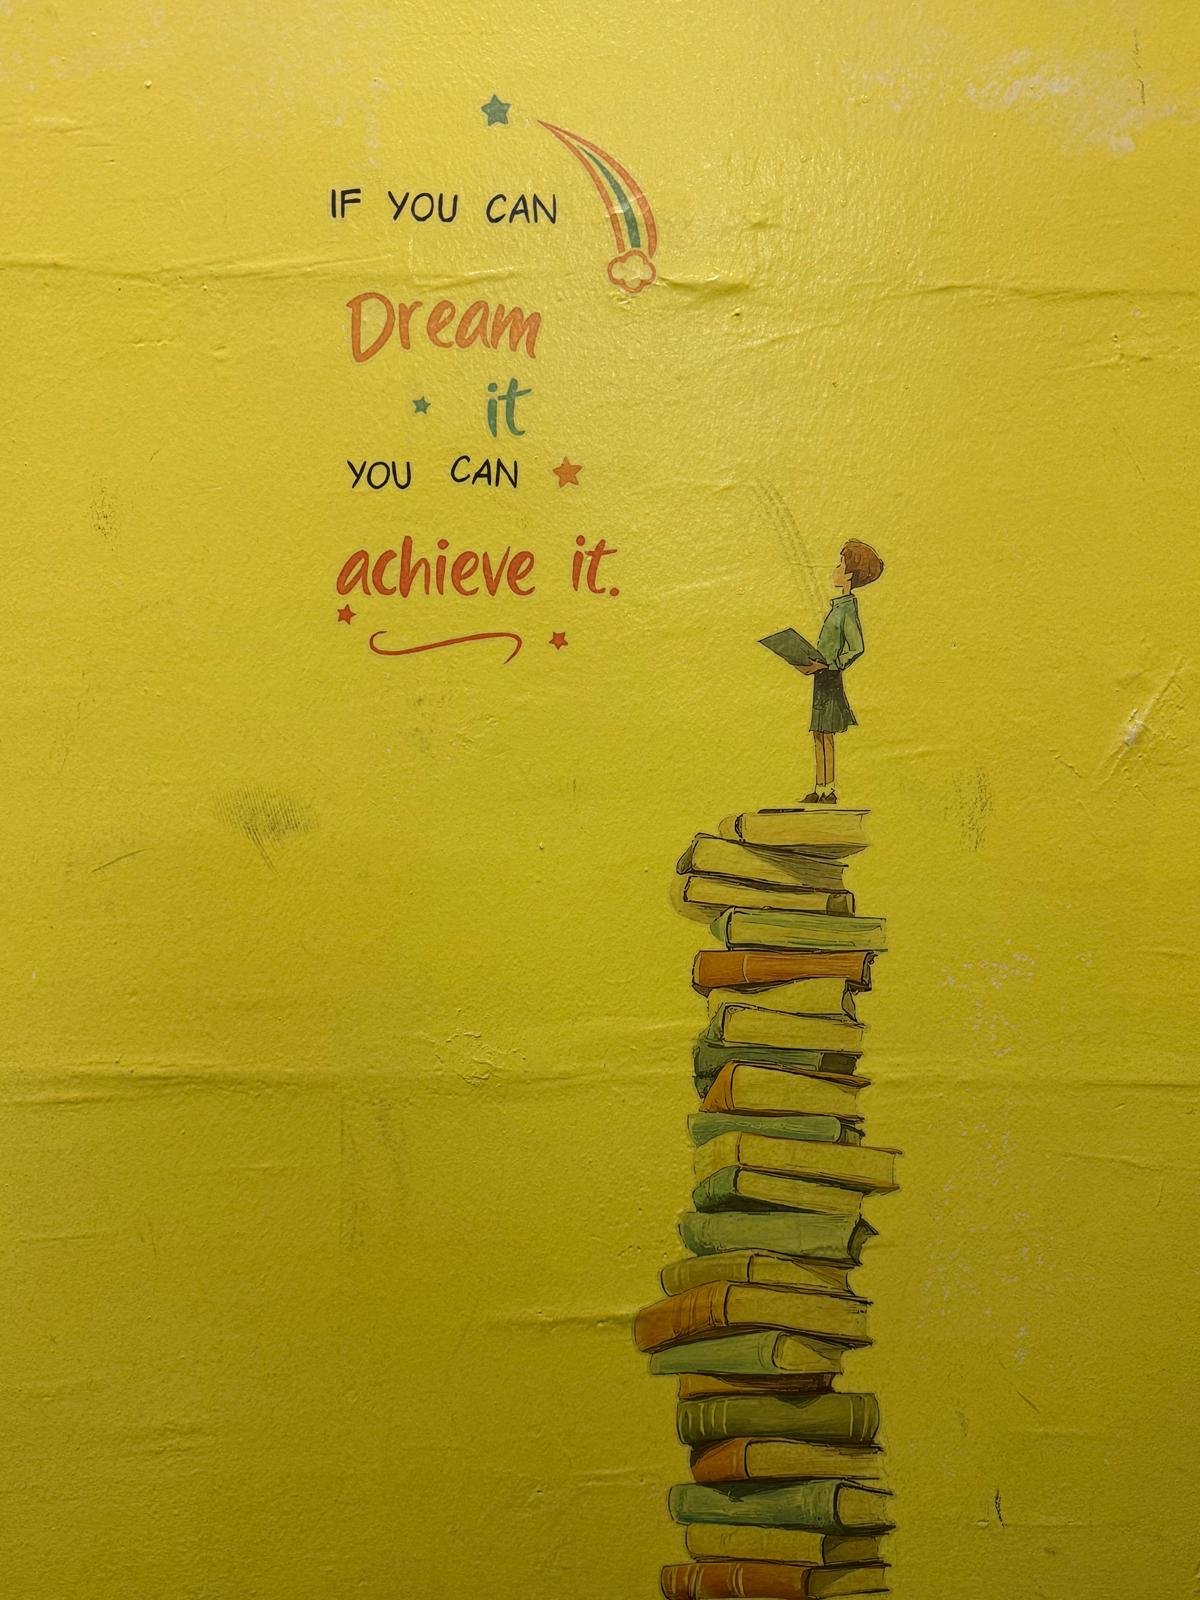 IF YOU CAN
Dream
it
YOU CAN
achieve it.